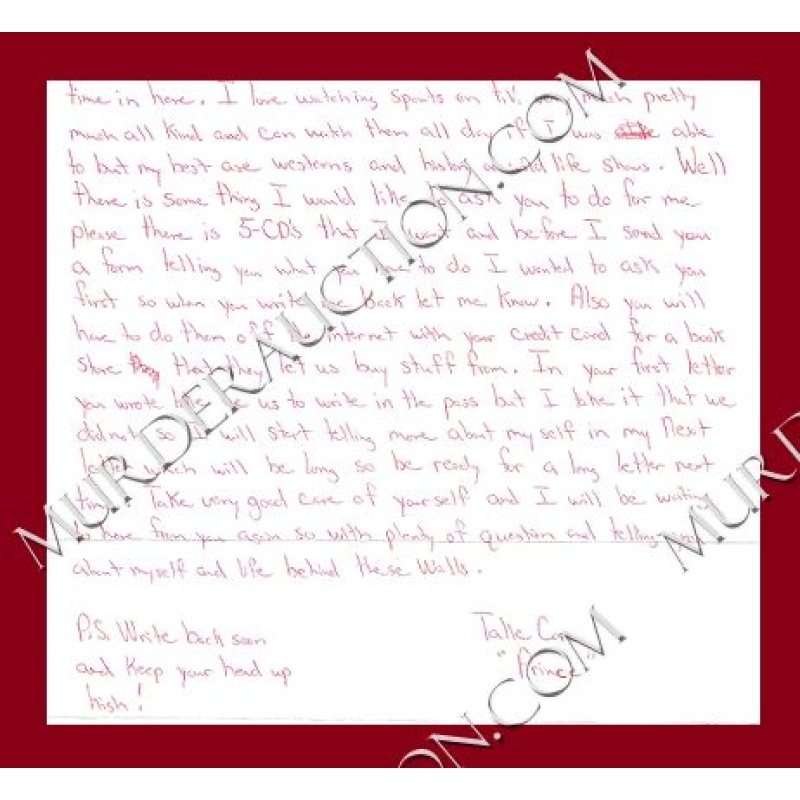 time in here. I love watching Sports on T.V. much pretty
much all kind and can watch them all day if I was able
to but my best are westerns and history life shows. Well
there is some thing I would like to ask you to do for me
please there is 5-CD's that I want and before I send you
a form telling you what you to do I wanted to ask you
first so when you write me back let me know. Also you will
have to do them off internet with your credit card for a book
store that they let us buy stuff from. In your first letter
you wrote us to write in the pass but I take it that we
did not so will start telling more about my self in my Next
which will be long so be ready for a long letter next
Take very good care of yourself and I will be waiting
to here from you again so with plenty of question and telling
about myself and life behind these Walls.
P.S. Write back soon
and Keep your head up
high!
Take Care
"Prince"
MURDERAUCTION.COM
MURD
ON.COM